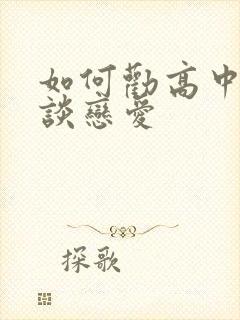 如何勸高中
談戀愛
探歌